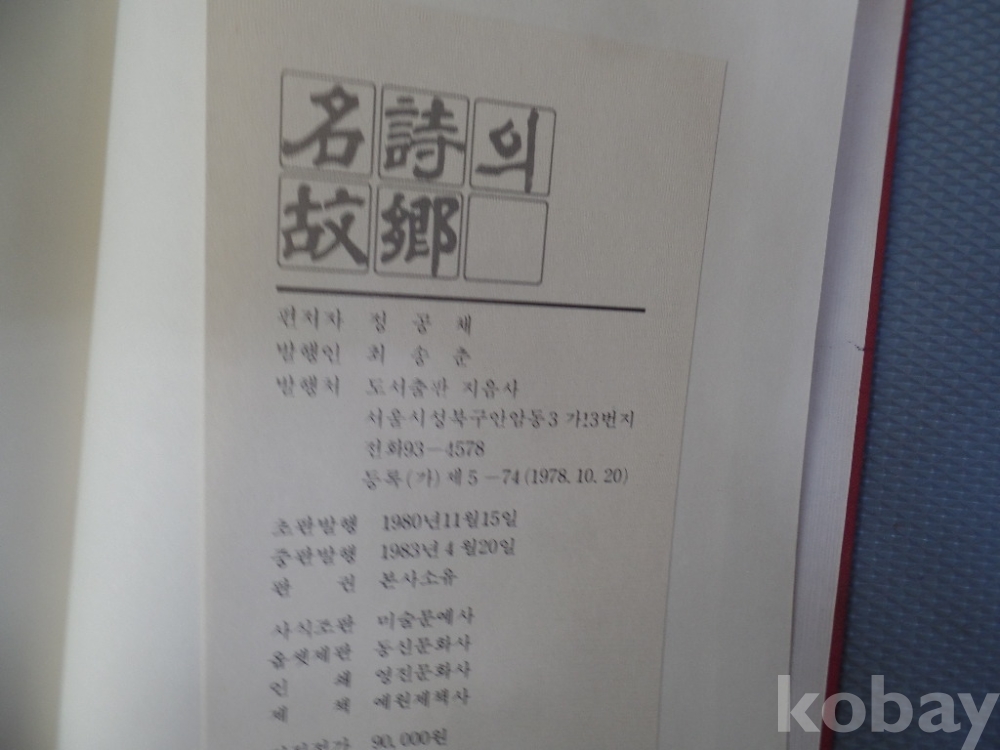 名詩의
故鄕
편저자 정 공 채
발행인 최 송 춘
발행처 도서출판 지음사
서울시성북구안암동3 가13번지
전화93-4578
등록(가) 제5-74 (1978. 10. 20)
초판발행 1980년11월15일
중판발행 1983년 4 월20일
판 권 본사소유
사식조판 미술문예사
옵셋제판 동신문화사
인 쇄 영진문화사
제 책 예원제책사
90,000원
kobay